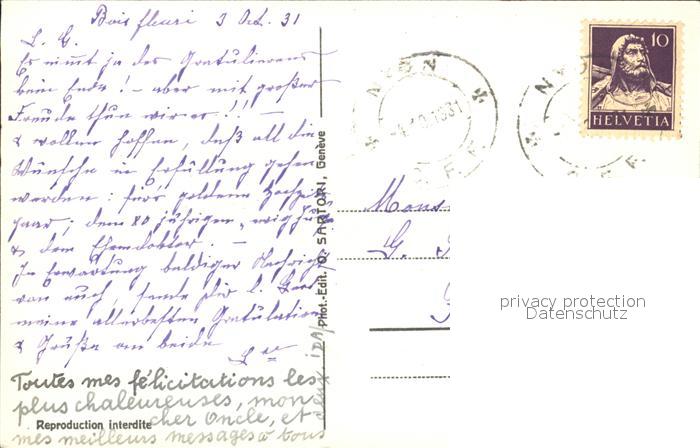 Bois fleuri 3 Oct. 31
L. G.
Es nimmt ja des Gratulierens
kein Ende! – aber mit großer
Freude thun wir es!! –
& wollen hoffen, daß all die
Wünsche in Erfüllung gehen
werden: für's goldene Hochzeits
paar; dem 80 jährigen
& dem Ehrendoktor. –
In Erwartung baldiger Nachricht
von euch, sende Dir l.
meine allerbesten Gratulation
& Grüße an beide
Toutes mes félicitations les
plus chaleureuses, mon
cher Oncle, et
mes meilleurs messages à tous
deux
Reproduction interdite
Phot.-Edit. O. SARTORI, Genève
NYON
1931
10
HELVETIA
NYON
Mons
G.
privacy protection
Datenschutz